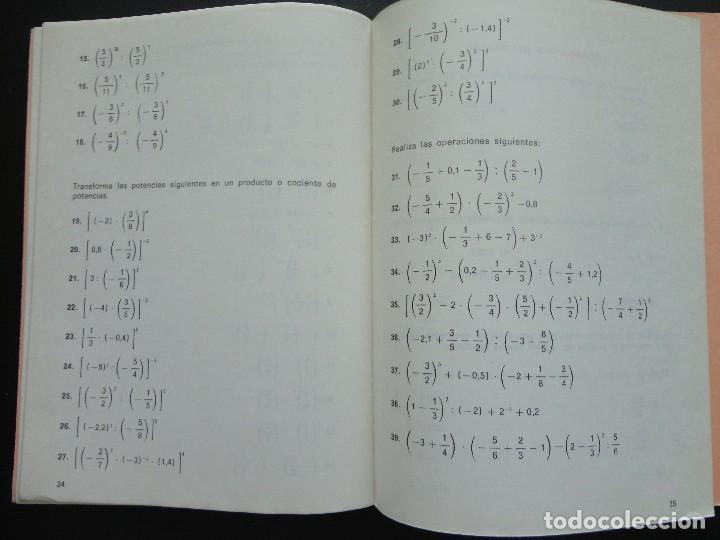 15. (5/3)  : (5/3)
16. (5/11)  : (5/11)
17. (−3/8)² : (−3/8)
18. (−4/9)⁻ : (−4/9)
Transforma las potencias siguientes en un producto o cociente de
potencias.
19. [(−2) · (3/8)]
20. [0,8 · (−1/2)]⁻²
21. [3 : (−1/6)]
22. [(−4) · (3/5)]⁻
23. [1/3 · (−0,4)]
24. [(−8)² : (−5/4)]⁻
25. [(−3/2)  : (−1/5)]
26. [(−2,2)³ : (−5/8)]
27. [(−2/7)  · (−3)⁻² · (1,4)]
34
28. [(−3/10)⁻² : (−1,4)]⁻²
29. [(2)³ · (−3/4)²]³
30. [(−2/5)² : (3/4)³]³
Realiza las operaciones siguientes:
31. (−1/5 + 0,1 − 1/3) : (2/5 − 1)
32. (−5/4 + 1/2) · (−2/3)² −0,8
33. (−3)² · (−1/3 + 6 − 7) + 3⁻²
34. (−1/2)³ − (0,2 − 1/5 + 2/3)² : (−4/5 + 1,2)
35. [(3/2)² − 2 · (−3/4) · (5/2) + (−1/2)²] : (−7/4 + 1/2)
36. (−2,1 + 3/5 − 1/2) : (−3 + 6/5)
37. (−3/2)  + (−0,5) · (−2 + 1/8 − 3/4)
38. (1 − 1/3)² : (−2) + 2⁻² + 0,2
39. (−3 + 1/4) · (−5/6 + 2/3 − 1) − (2 − 1/3)² : 5/6
35
todocoleccion.net